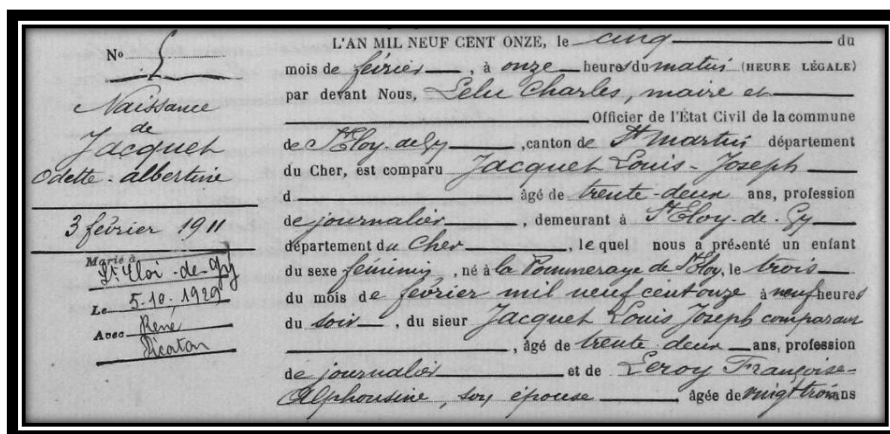 No 5
Naissance
de
Jacquet
Odette-albertine
3 février 1911
Marié à
St Eloi-de-Gy
Le 5.10.1929
Avec René
Picaton
L'AN MIL NEUF CENT ONZE, le cinq du
mois de février, à onze heures du matin (HEURE LÉGALE)
par devant Nous, Lelu Charles, maire et
Officier de l'État Civil de la commune
de St Eloy-de-Gy, canton de St Martin département
du Cher, est comparu Jacquet Louis-Joseph
d âgé de trente-deux ans, profession
de journalier, demeurant à St Eloy-de-Gy
département du Cher, lequel nous a présenté un enfant
du sexe féminin, né à la Pommeraye de St Eloy, le trois
du mois de février mil neuf cent onze à neuf heures
du soir, du sieur Jacquet Louis Joseph comparant
, âgé de trente-deux ans, profession
de journalier et de Leroy Françoise-
Alphonsine, son épouse âgée de vingt trois ans